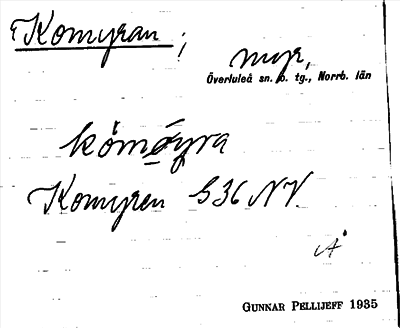 Komyran;
myr,
Överluleå sn. o. tg., Norrb. län
kòmóyra
Komyren G36 NV.
Å
GUNNAR PELLIJEFF 1935